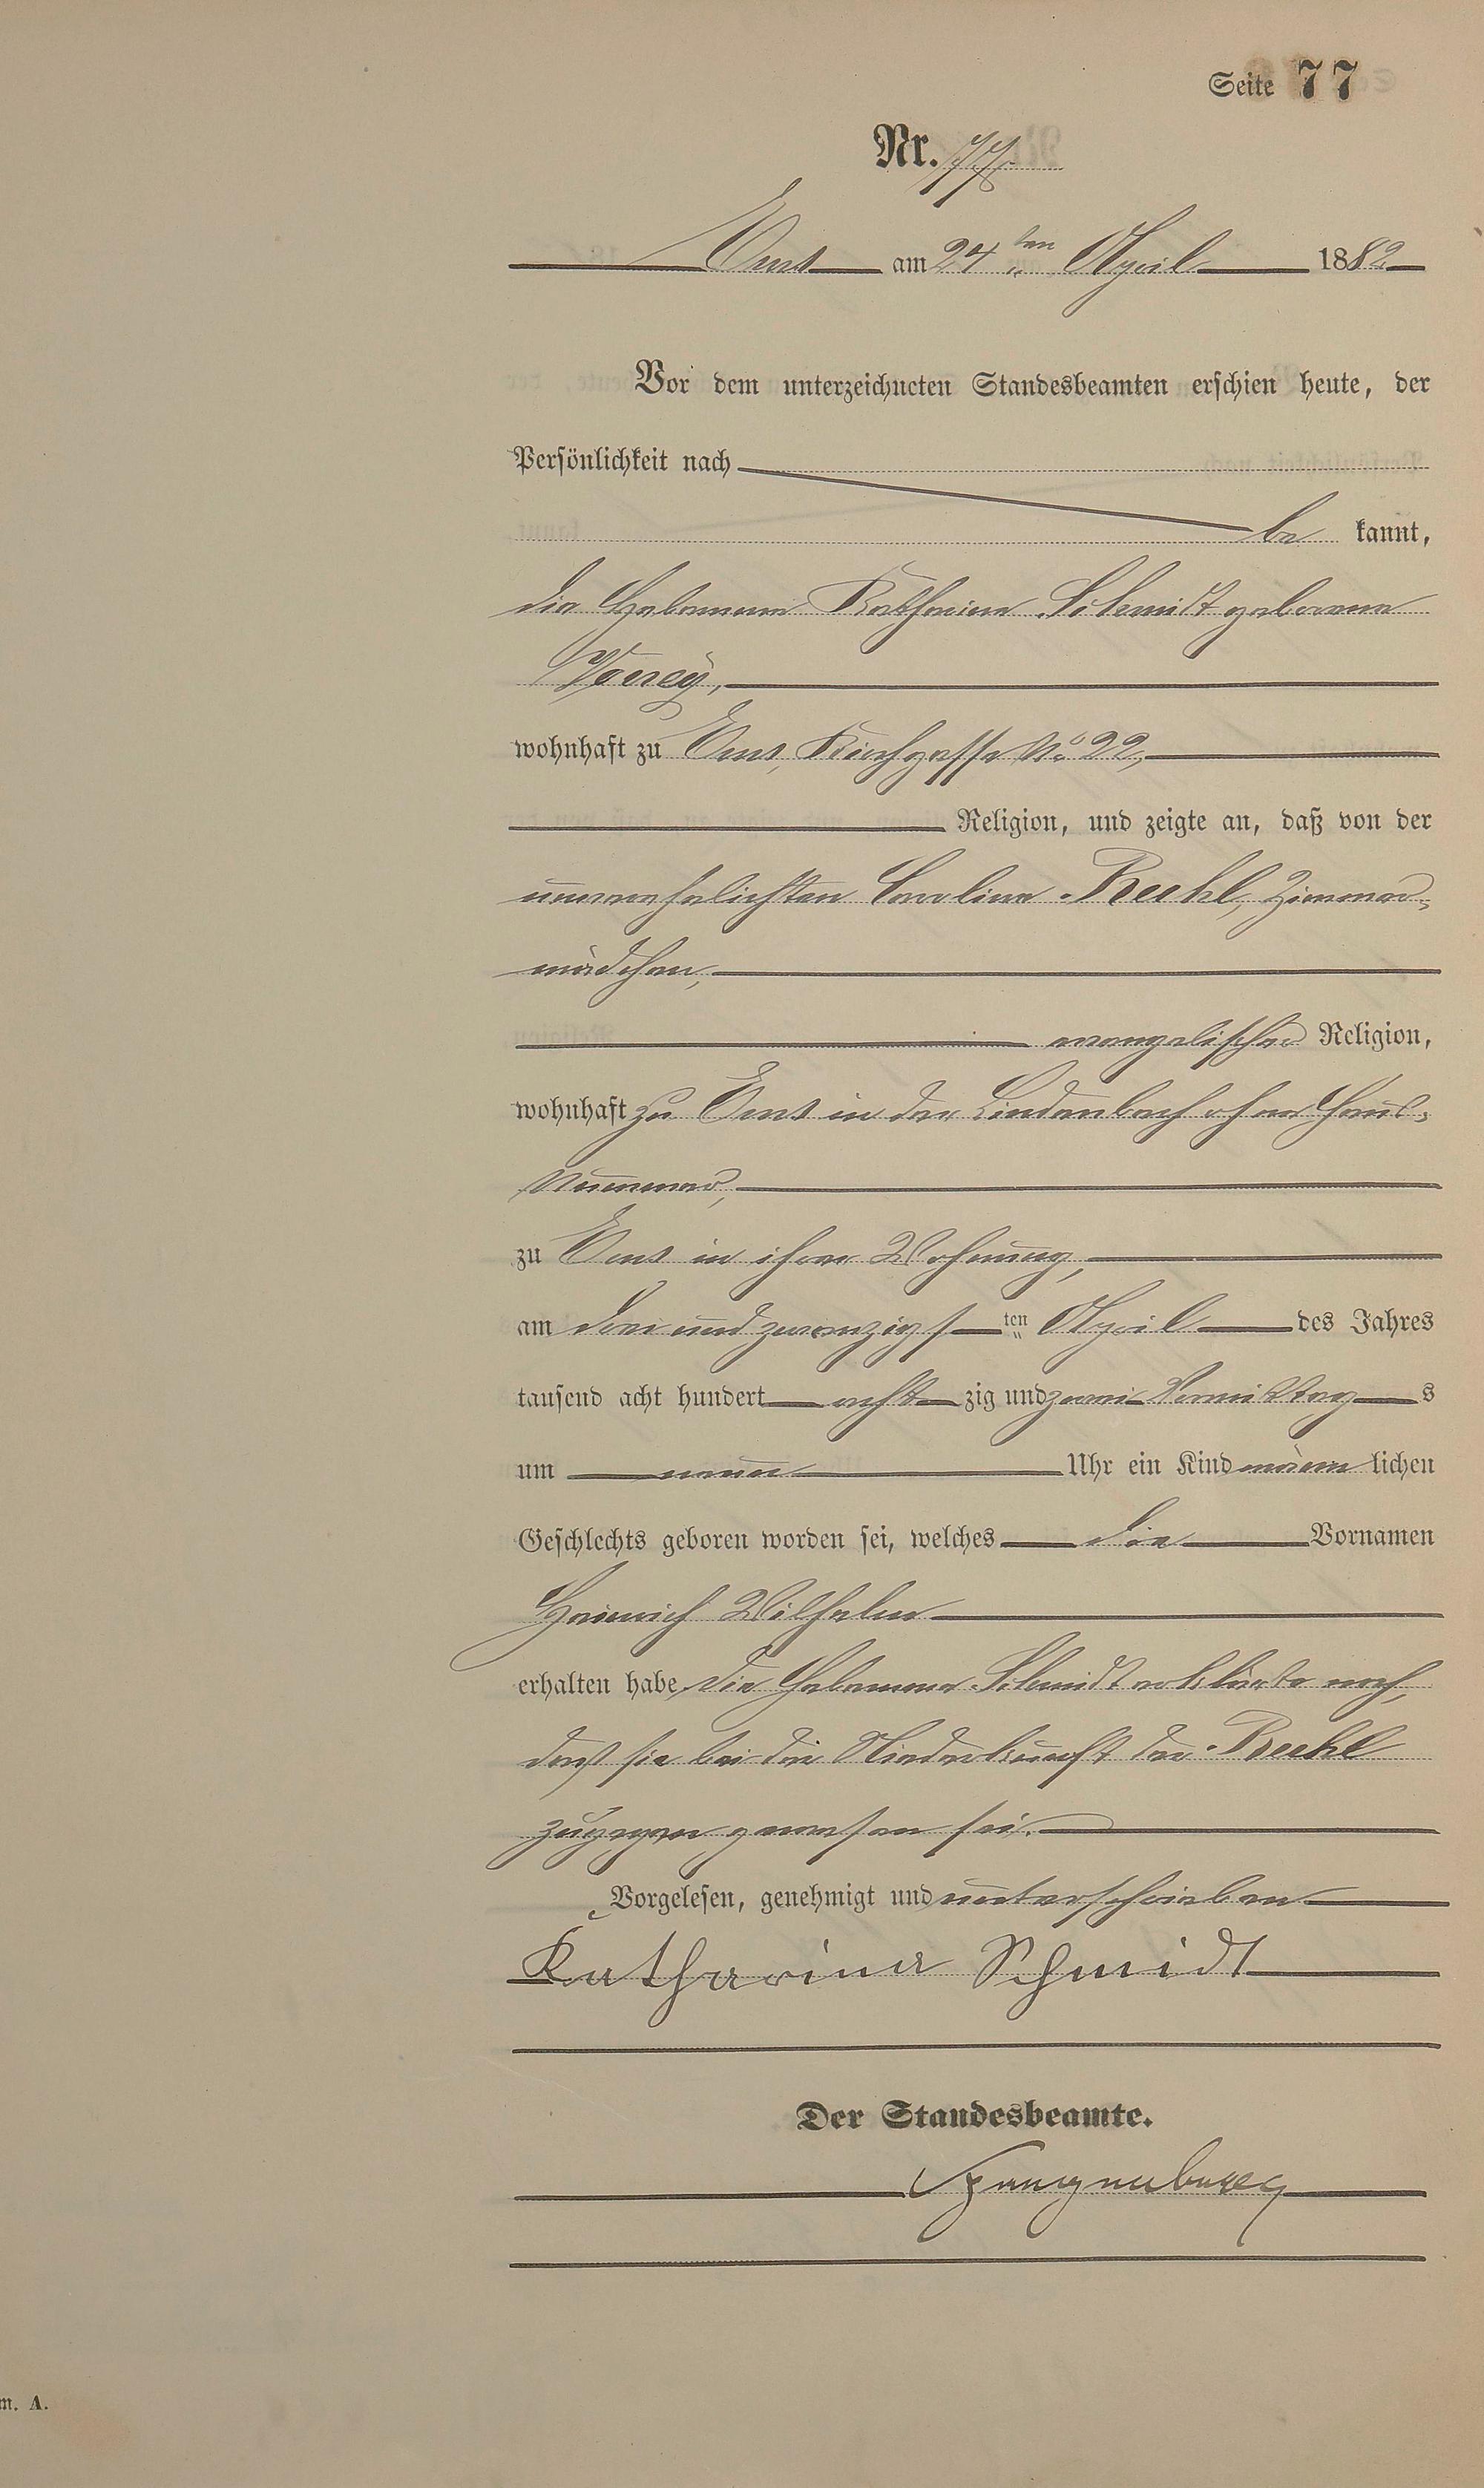 Seite 77
Nr. 77.
Ems am 24ten April 1882
Vor dem unterzeichneten Standesbeamten erschien heute, der
Persönlichkeit nach
be kannt,
die Hebamme Katharina Schmidt geborene
wohnhaft zu Ems, Kirchgasse No 22,
Religion, und zeigte an, daß von der
unverehelichten Carolina Reehl, Zimmer-
mädchen,
evangelischer Religion,
wohnhaft zu Ems in der Lindenbach ohne Haus-
Nummer,
zu Ems in ihrer Wohnung,
am drei und zwanzigsten April des Jahres
tausend acht hundert acht zig und zwei Vormittags
um neun Uhr ein Kind männlichen
Geschlechts geboren worden sei, welches die Vornamen
Heinrich Wilhelm
erhalten habe. Die Hebamme Schmidt erklärte noch,
daß sie bei der Niederkunft der Reehl
zugegen gewesen sei.
Vorgelesen, genehmigt und unterschrieben
Katharina Schmidt
Der Standesbeamte.
Spangenberg
m. A.